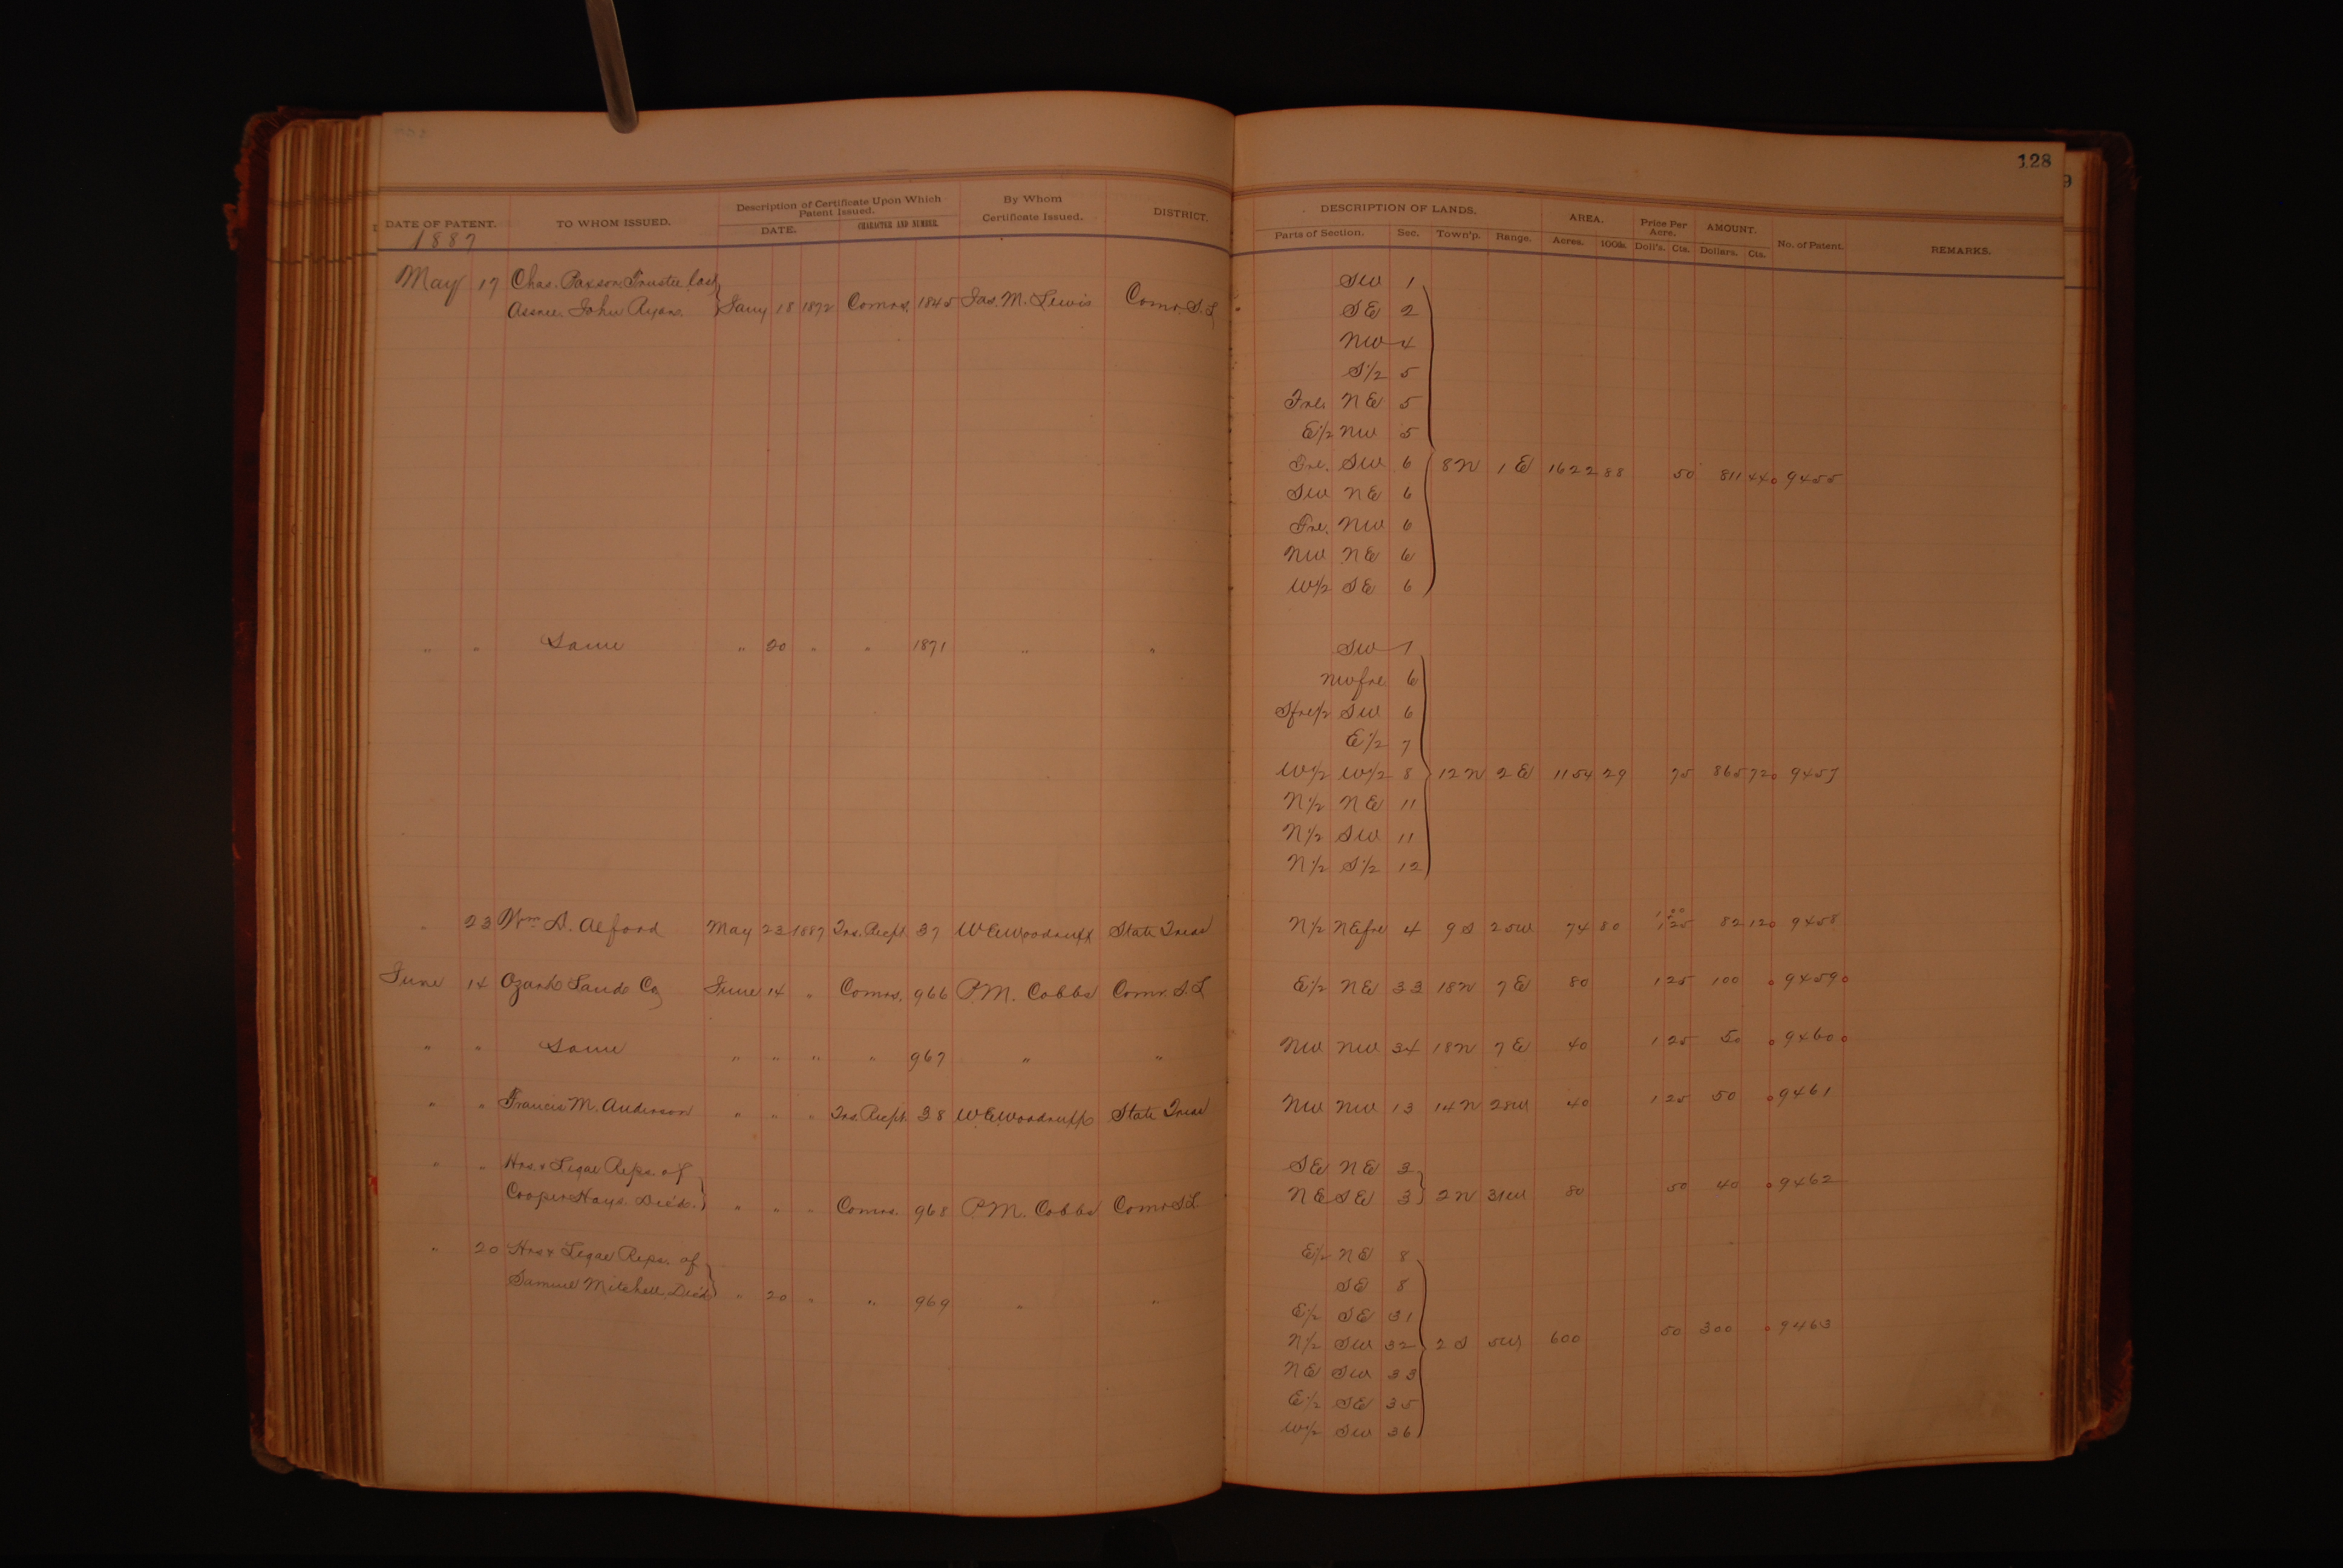 128
DATE OF PATENT. TO WHOM ISSUED. Description of Certificate Upon Which Patent Issued. DATE. CHARACTER AND NUMBER. By Whom Certificate Issued. DISTRICT. DESCRIPTION OF LANDS. Parts of Section. Sec. Town'p. Range. AREA. Acres. 100ths. Price Per Acre. Doll's. Cts. AMOUNT. Dollars. Cts. No. of Patent. REMARKS.
1887
May 17 Chas. Paxson, Trustee last SW 1
Assnee. John Ryan. Jany 18 1872 Comrs. 1845 Jas. M. Lewis Comr. S. L SE 2
NW 4
S 1/2 5
Frl. NE 5
E 1/2 NW 5
Frl. SW 6 8N 1 E 1622 88 50 811 44 9455
SW NE 6
Frl. NW 6
NW NE 6
W 1/2 SE 6
" " Same " 20 " " 1871 " " SW 1
NW frl 6
S frl 1/2 SW 6
E 1/2 7
W 1/2 W 1/2 8 12 N 2 E 1154 29 75 865 72 9457
N 1/2 NE 11
N 1/2 SW 11
N 1/2 S 1/2 12
" 23 Wm D. Alford May 23 1887 Trs. Recpt 37 W E Woodruff State Treas N 1/2 NE frl 4 9 S 25W 74 80 1 00 1 25 82 12 9458
June 14 Ozark Land Co June 14 " Comrs. 966 P.M. Cobbs Comr. S. L E 1/2 NE 33 18N 7 E 80 1 25 100 9459
" " Same " " " " 967 " " NW NW 34 18N 7 E 40 1 25 50 9460
" " Francis M. Anderson " " " Trs. Recpt. 38 W E Woodruff State Treas NW NW 13 14 N 28W 40 1 25 50 9461
" " Hrs. & Legal Reps. of SE NE 3
Cooper Hays. Dec'd. " " " Comrs. 968 P.M. Cobbs Comr S L NE SE 3 2 N 31W 80 50 40 9462
" 20 Hrs & Legal Reps. of E 1/2 NE 8
Samuel Mitchell, Dec'd " 20 " " 969 " " SE 8
E 1/2 SE 31
N 1/2 SW 32 2 S 5W 600 50 300 9463
NE SW 33
E 1/2 SE 35
W 1/2 SW 36